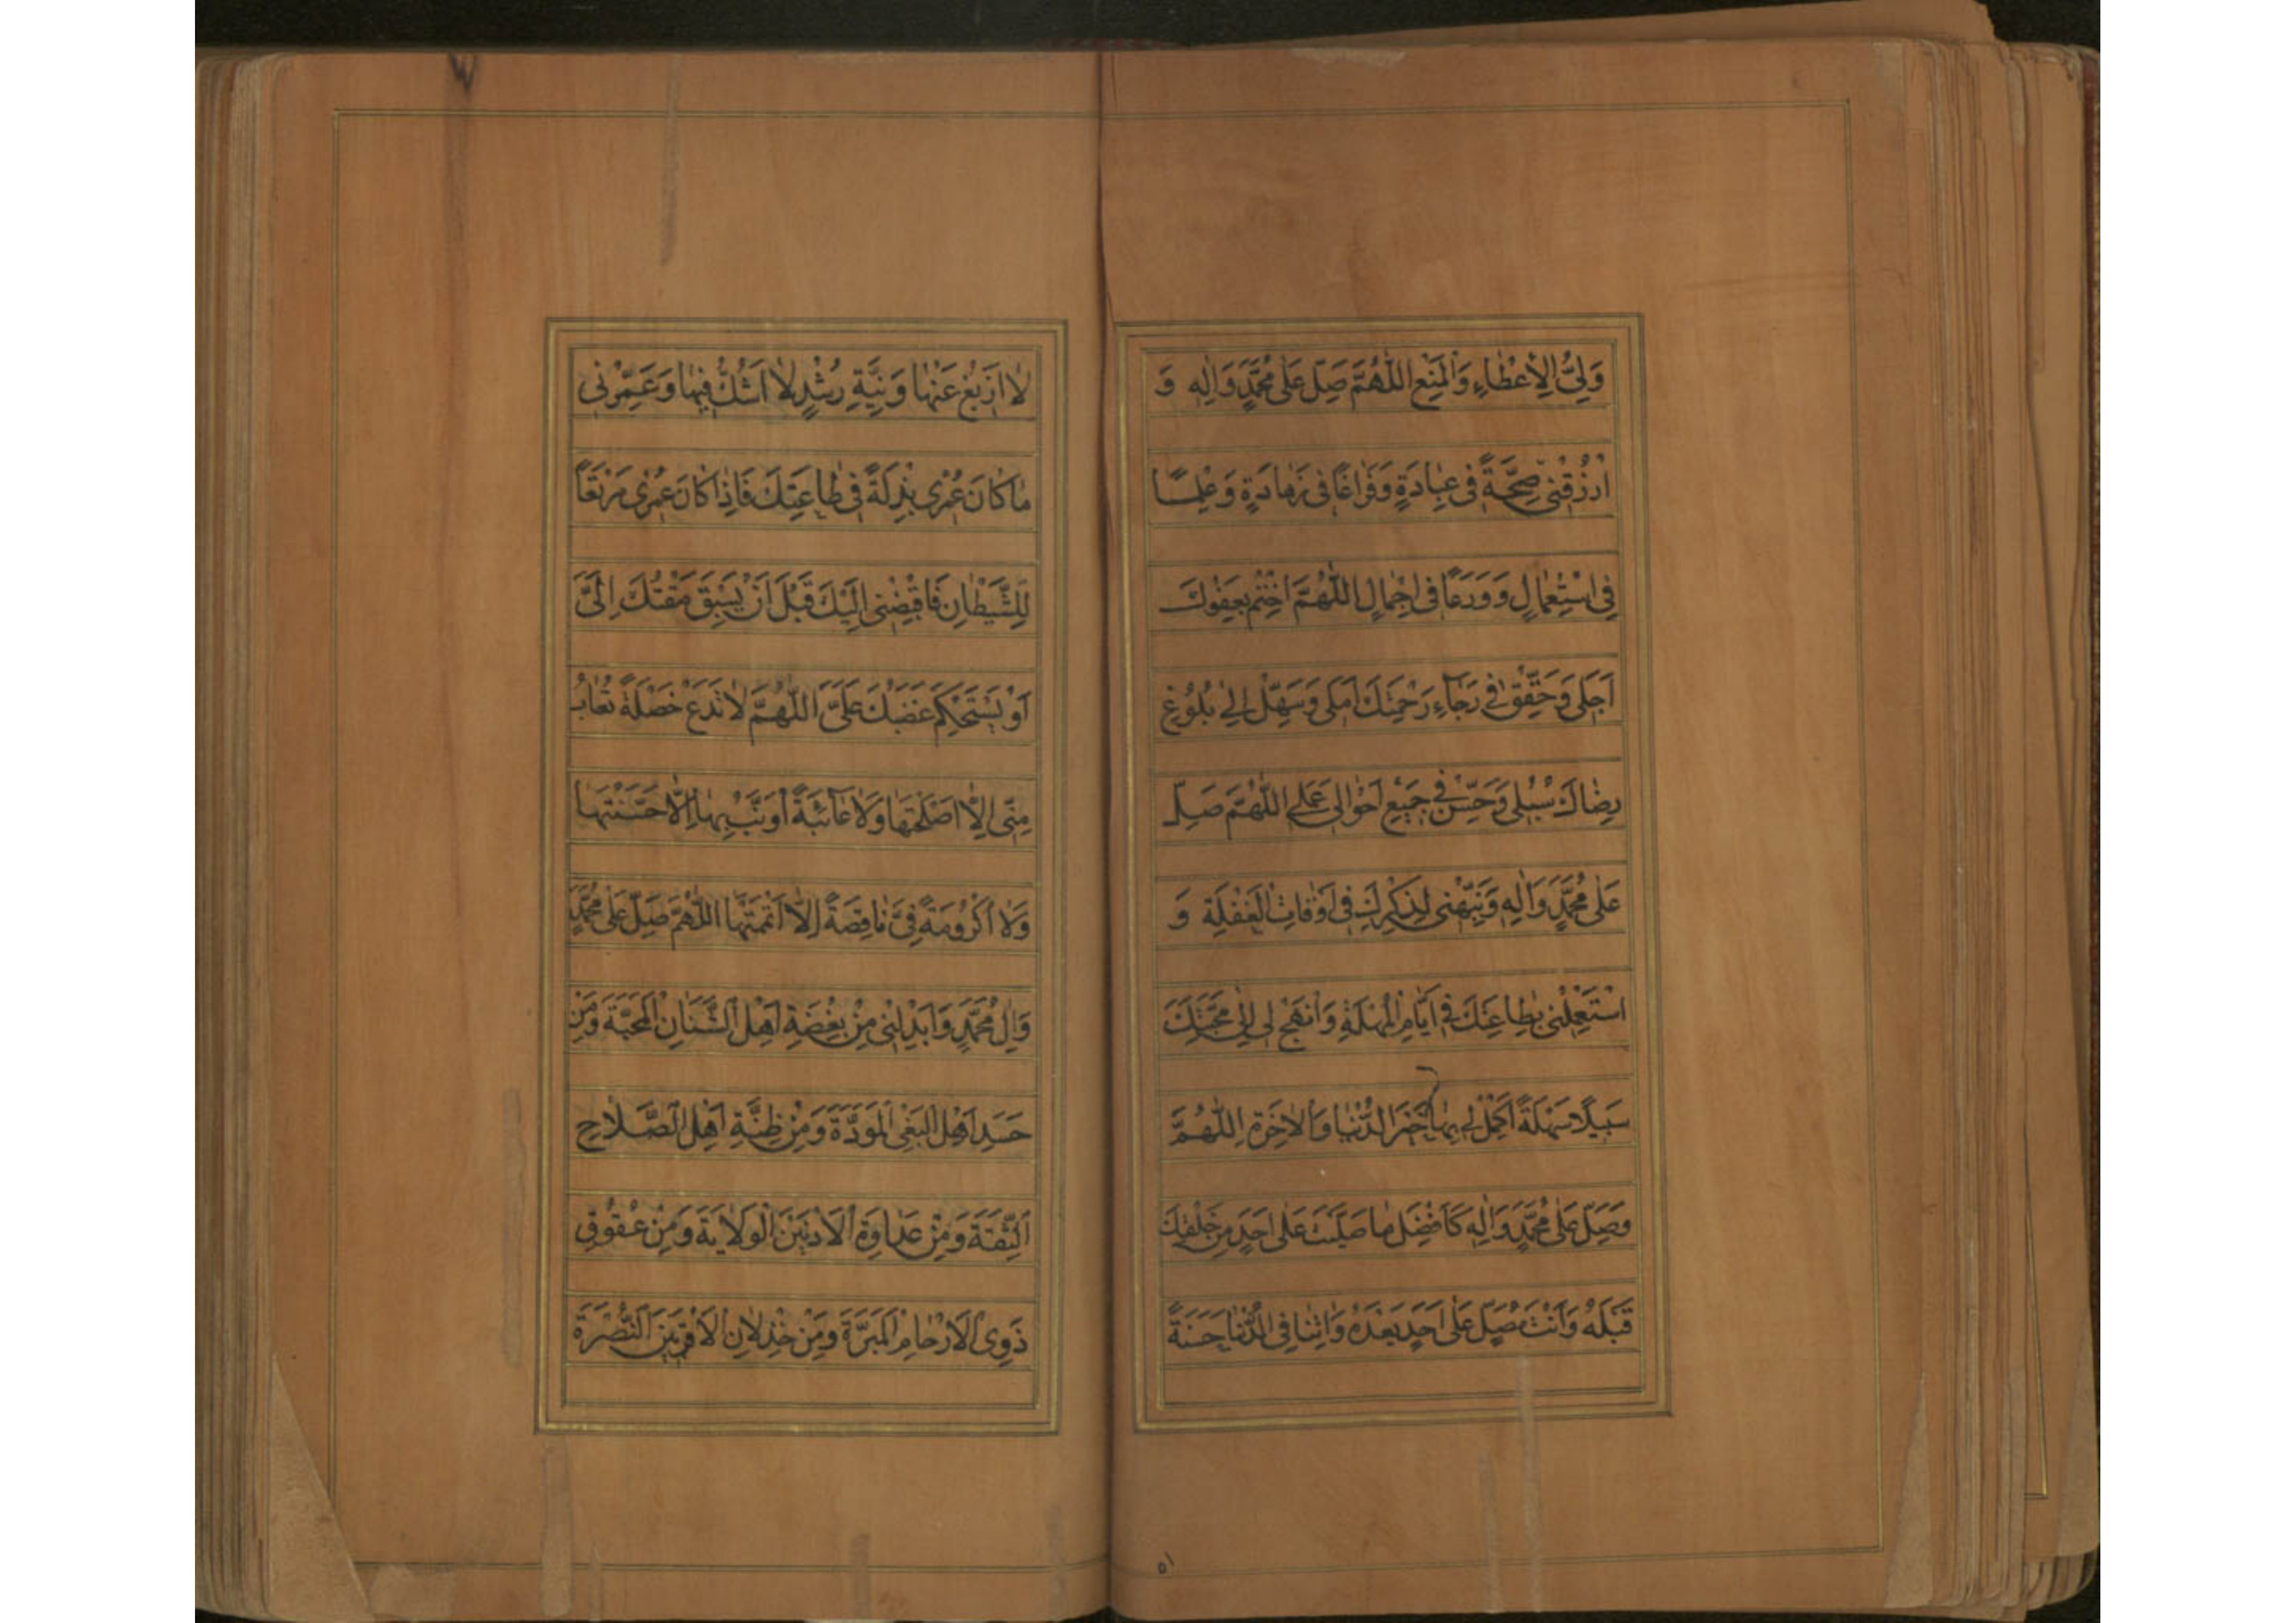 وَلِيُّ الْاِعْطَاءِ وَالْمَنْعِ اَللّٰهُمَّ صَلِّ عَلٰى مُحَمَّدٍ وَاٰلِهِ وَ
ارْزُقْنِي صِحَّةً فِي عِبَادَةٍ وَفَرَاغًا فِي زَهَادَةٍ وَعِلْمًا
فِي اسْتِعْمَالٍ وَوَرَعًا فِي اِجْمَالٍ اَللّٰهُمَّ اخْتِمْ بِعَفْوِكَ
اَجَلِي وَحَقِّقْ فِي رَجَاءِ رَحْمَتِكَ اَمَلِي وَسَهِّلْ اِلٰى بُلُوغِ
رِضَاكَ سُبُلِي وَحَسِّنْ فِي جَمِيعِ اَحْوَالِي عَمَلِي اَللّٰهُمَّ صَلِّ
عَلٰى مُحَمَّدٍ وَاٰلِهِ وَنَبِّهْنِي لِذِكْرِكَ فِي اَوْقَاتِ الْغَفْلَةِ وَ
اسْتَعْمِلْنِي بِطَاعَتِكَ فِي اَيَّامِ الْمُهْلَةِ وَانْهَجْ لِي اِلٰى مَحَبَّتِكَ
سَبِيلًا سَهْلَةً اَكْمِلْ لِي بِهَا خَيْرَ الدُّنْيَا وَالْاٰخِرَةِ اَللّٰهُمَّ
وَصَلِّ عَلٰى مُحَمَّدٍ وَاٰلِهِ كَاَفْضَلِ مَا صَلَّيْتَ عَلٰى اَحَدٍ مِنْ خَلْقِكَ
قَبْلَهُ وَاَنْتَ مُصَلٍّ عَلٰى اَحَدٍ بَعْدَهُ وَاٰتِنَا فِي الدُّنْيَا حَسَنَةً
۵۱
لَا اَزِيغُ عَنْهَا وَنِيَّةِ رُشْدٍ لَا اَشُكُّ فِيهَا وَعَمِّرْنِي
مَا كَانَ عُمْرِي بِذْلَةً فِي طَاعَتِكَ فَاِذَا كَانَ عُمْرِي مَرْتَعًا
لِلشَّيْطَانِ فَاقْبِضْنِي اِلَيْكَ قَبْلَ اَنْ يَسْبِقَ مَقْتُكَ اِلَيَّ
اَوْ يَسْتَحْكِمَ غَضَبُكَ عَلَيَّ اَللّٰهُمَّ لَا تَدَعْ خَصْلَةً تُعَابُ
مِنِّي اِلَّا اَصْلَحْتَهَا وَلَا عَائِبَةً اُوَنَّبُ بِهَا اِلَّا حَسَّنْتَهَا
وَلَا اُكْرُومَةً فِيَّ نَاقِصَةً اِلَّا اَتْمَمْتَهَا اَللّٰهُمَّ صَلِّ عَلٰى مُحَمَّدٍ
وَاٰلِ مُحَمَّدٍ وَاَبْدِلْنِي مِنْ بِغْضَةِ اَهْلِ الشَّنَاٰنِ الْمَحَبَّةَ وَمِنْ
حَسَدِ اَهْلِ الْبَغْيِ الْمَوَدَّةَ وَمِنْ ظِنَّةِ اَهْلِ الصَّلَاحِ
اَلثِّقَةَ وَمِنْ عَدَاوَةِ الْاَدْنَيْنَ الْوَلَايَةَ وَمِنْ عُقُوقِ
ذَوِي الْاَرْحَامِ الْمَبَرَّةَ وَمِنْ خِذْلَانِ الْاَقْرَبِينَ النُّصْرَةَ